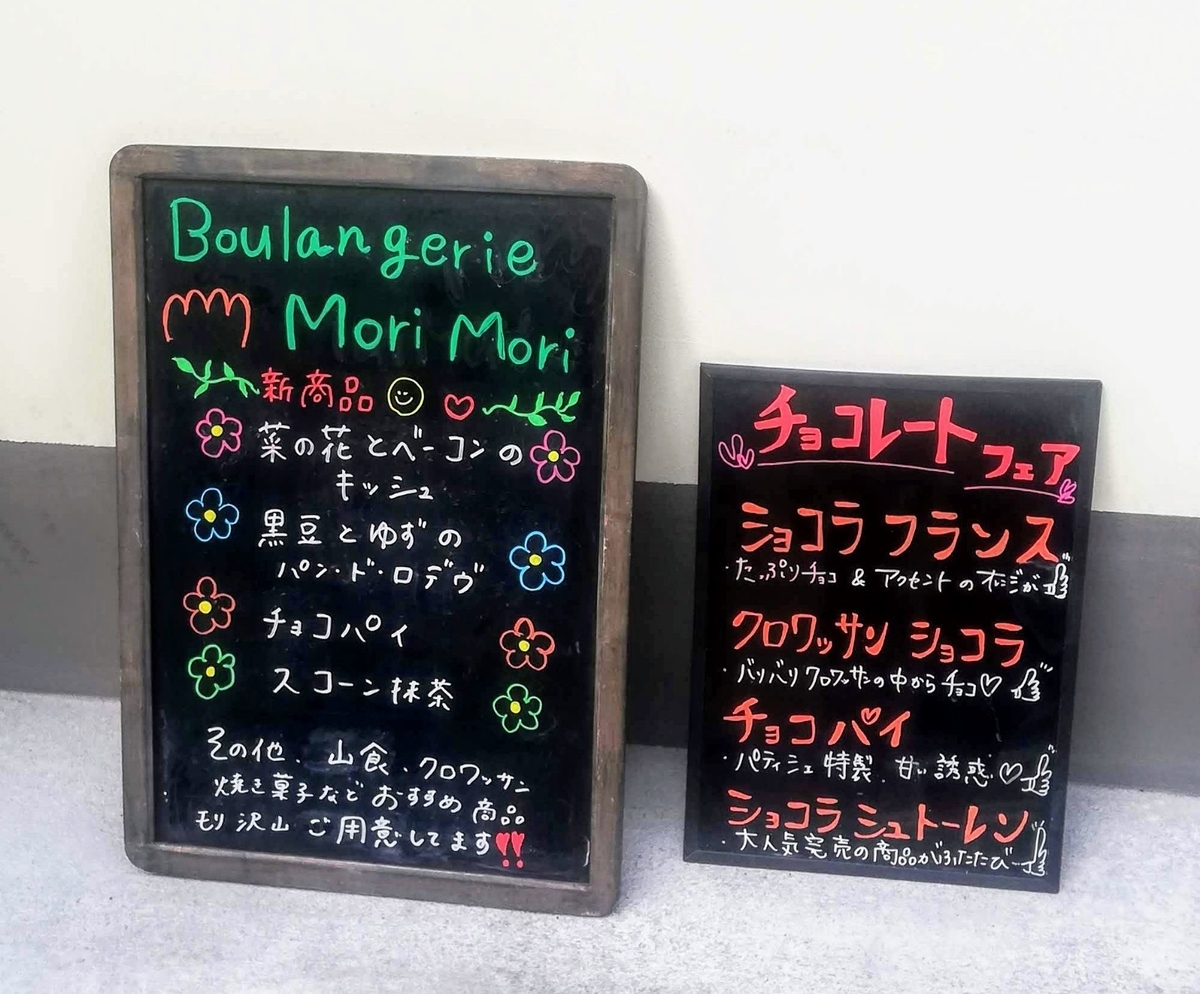 Boulangerie
Mori Mori
新商品
菜の花とベーコンの
キッシュ
黒豆とゆずの
パン・ド・ロデヴ
チョコパイ
スコーン抹茶
その他、山食、クロワッサン
焼き菓子などおすすめ商品
モリ沢山ご用意してます!!
チョコレート フェア
ショコラ フランス
・たっぷりチョコ & アクセントのオレンジが
クロワッサン ショコラ
・バリバリクロワッサンの中からチョコ♡
チョコパイ
・パティシェ特製、甘い誘惑♡
ショコラ シュトーレン
・大人気完売の商品がふたたび